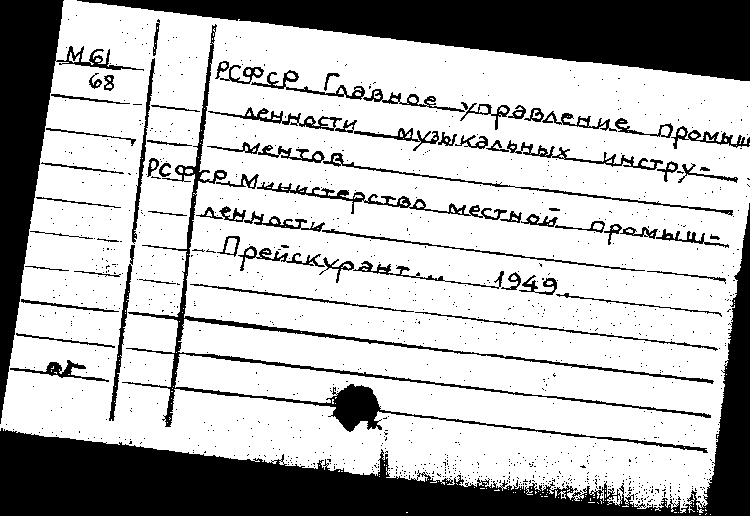 М61
68
РСФСР. Главное управление промыш
ленности музыкальных инстру-
ментов.
РСФСР. Министерство местной промыш-
ленности.
Прейскурант... 1949.